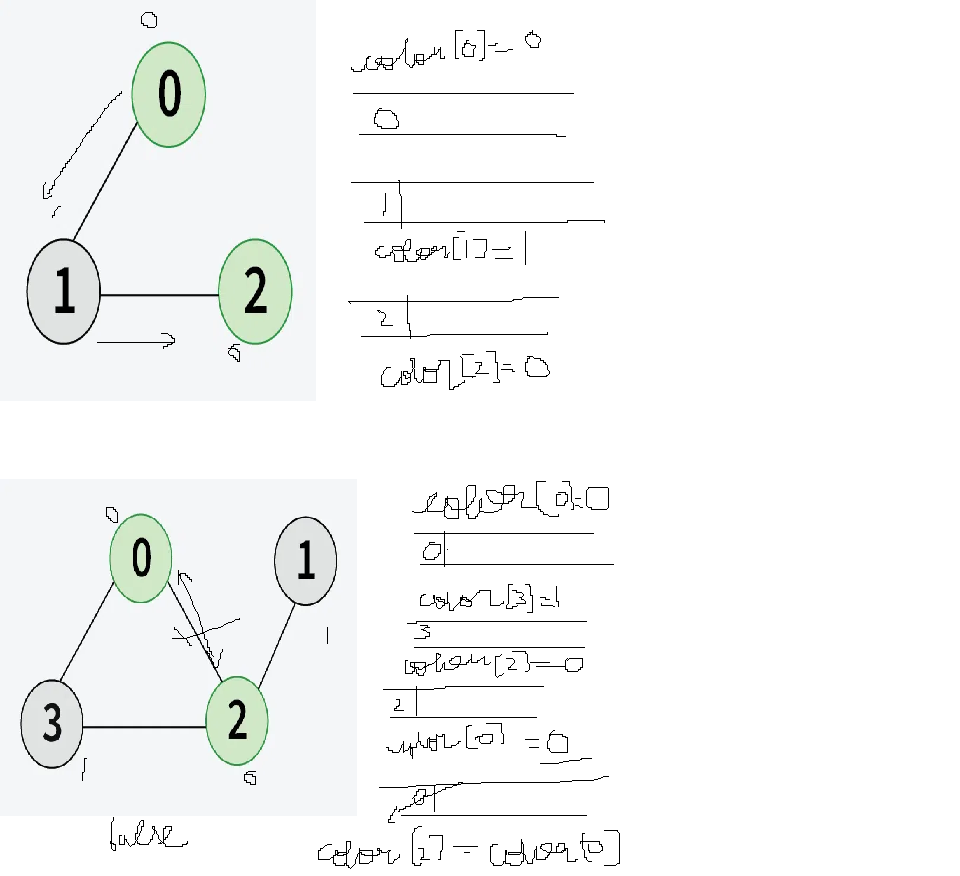 0
0
1
1
2
0
color[0]= 0
0
1
color[1] = 1
2
color[2]= 0
0
0
1
1
3
2
1
0
false
color[0]=0
0
color[3]=1
3
color[2]=0
2
color[0] = 0
0
color[2] = color[0]